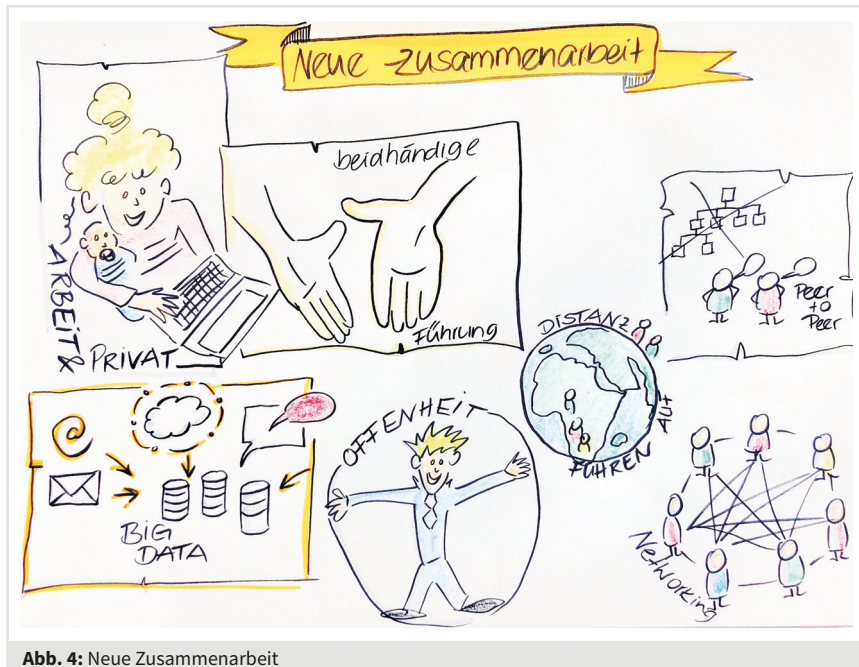 Neue Zusammenarbeit
ARBEIT &
PRIVAT
beidhändige
Führung
DISTANZ
AUF
FÜHREN
Peer
to
Peer
BIG
DATA
OFFENHEIT
Networking
Abb. 4: Neue Zusammenarbeit